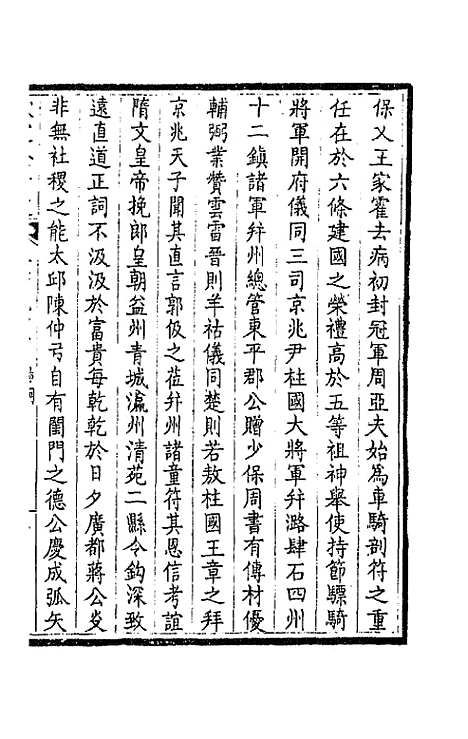 保乂王家霍去病初封冠軍周亞夫始爲車騎剖符之重
任在於六條建國之榮禮高於五等祖神舉使持節驃騎
將軍開府儀同三司京兆尹柱國大將軍幷潞肆石四州
十二鎮諸軍幷州總管東平郡公贈少保周書有傳材優
輔弼業贊雲雷晉則羊祜儀同楚則若敖柱國王章之拜
京兆天子聞其直言郭伋之莅幷州諸童符其恩信考誼
隋文皇帝挽郎皇朝益州青城瀛州清苑二縣令鈎深致
遠直道正詞不汲汲於富貴每乾乾於日夕廣都蔣公炎
非無社稷之能太邱陳仲弓自有閨門之德公慶成弧矢